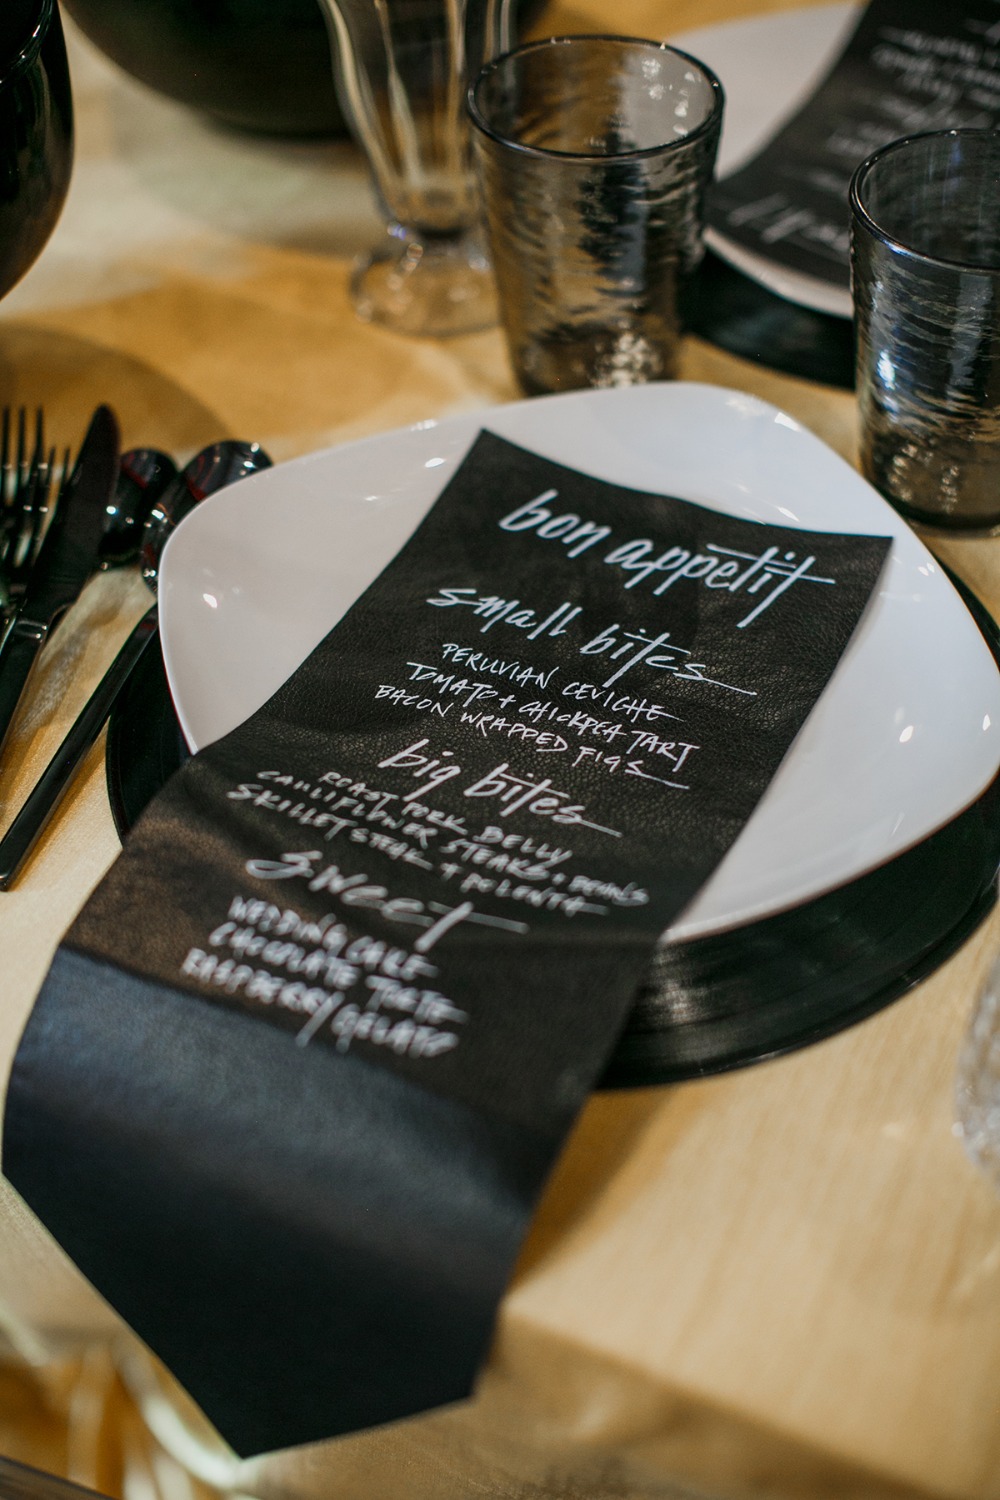 bon appétit
small bites
PERUVIAN CEVICHE
TOMATO + CHICKPEA TART
BACON WRAPPED FIGS
big bites
ROAST PORK BELLY
CAULIFLOWER STEAKS + BEANS
SKILLET STEAK + POLENTA
sweet
WEDDING CAKE
CHOCOLATE TORTE
RASPBERRY GELATO